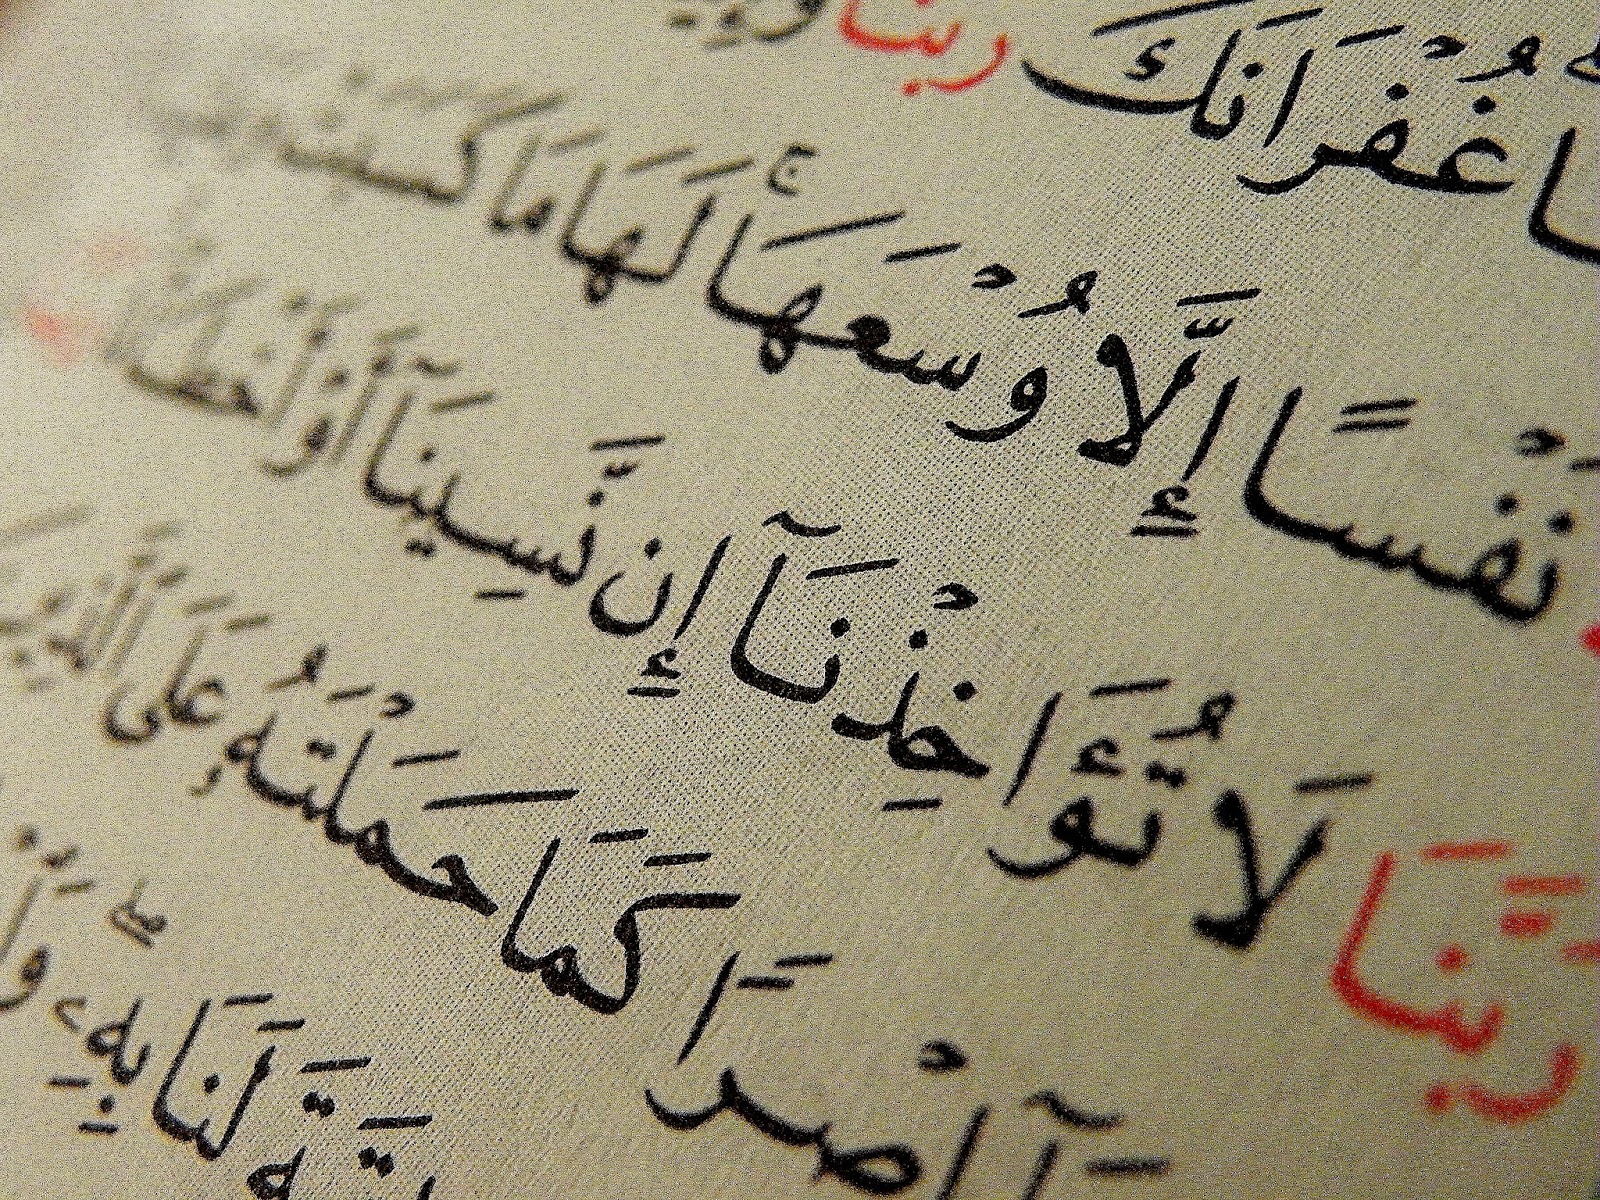 غُفْرَانَكَ رَبَّنَا
نَفْسًا إِلَّا وُسْعَهَاۚ لَهَا مَا كَسَبَتْ
رَبَّنَا لَا تُؤَاخِذْنَآ إِن نَّسِينَآ أَوْ أَخْطَأْنَا
إِصْرًا كَمَا حَمَلْتَهُۥ عَلَى ٱلَّذِينَ
لَنَا بِهِۦۖ